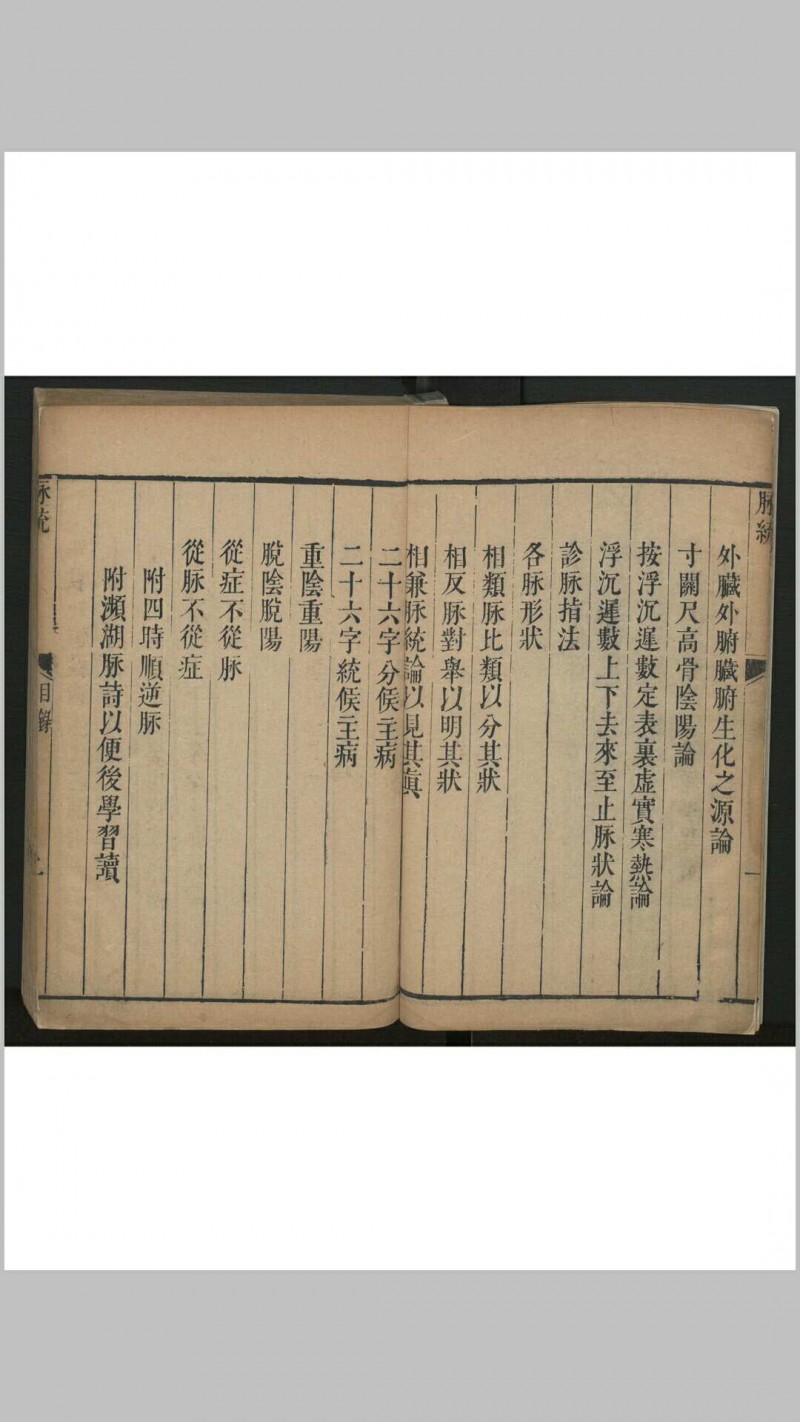 脉統
外臟外腑臟腑生化之源論
寸關尺高骨陰陽論
按浮沉遲數定表裏虛實寒熱論
浮沉遲數上下去來至止脉狀論
診脉指法
各脉形狀
相類脉比類以分其狀
相反脉對舉以明其狀
相兼脉統論以見其眞
二十六字分候主病
二十六字統候主病
重陰重陽
脫陰脫陽
從症不從脉
從脉不從症
附四時順逆脉
附瀕湖脉詩以便後學習讀
脉統
目錄